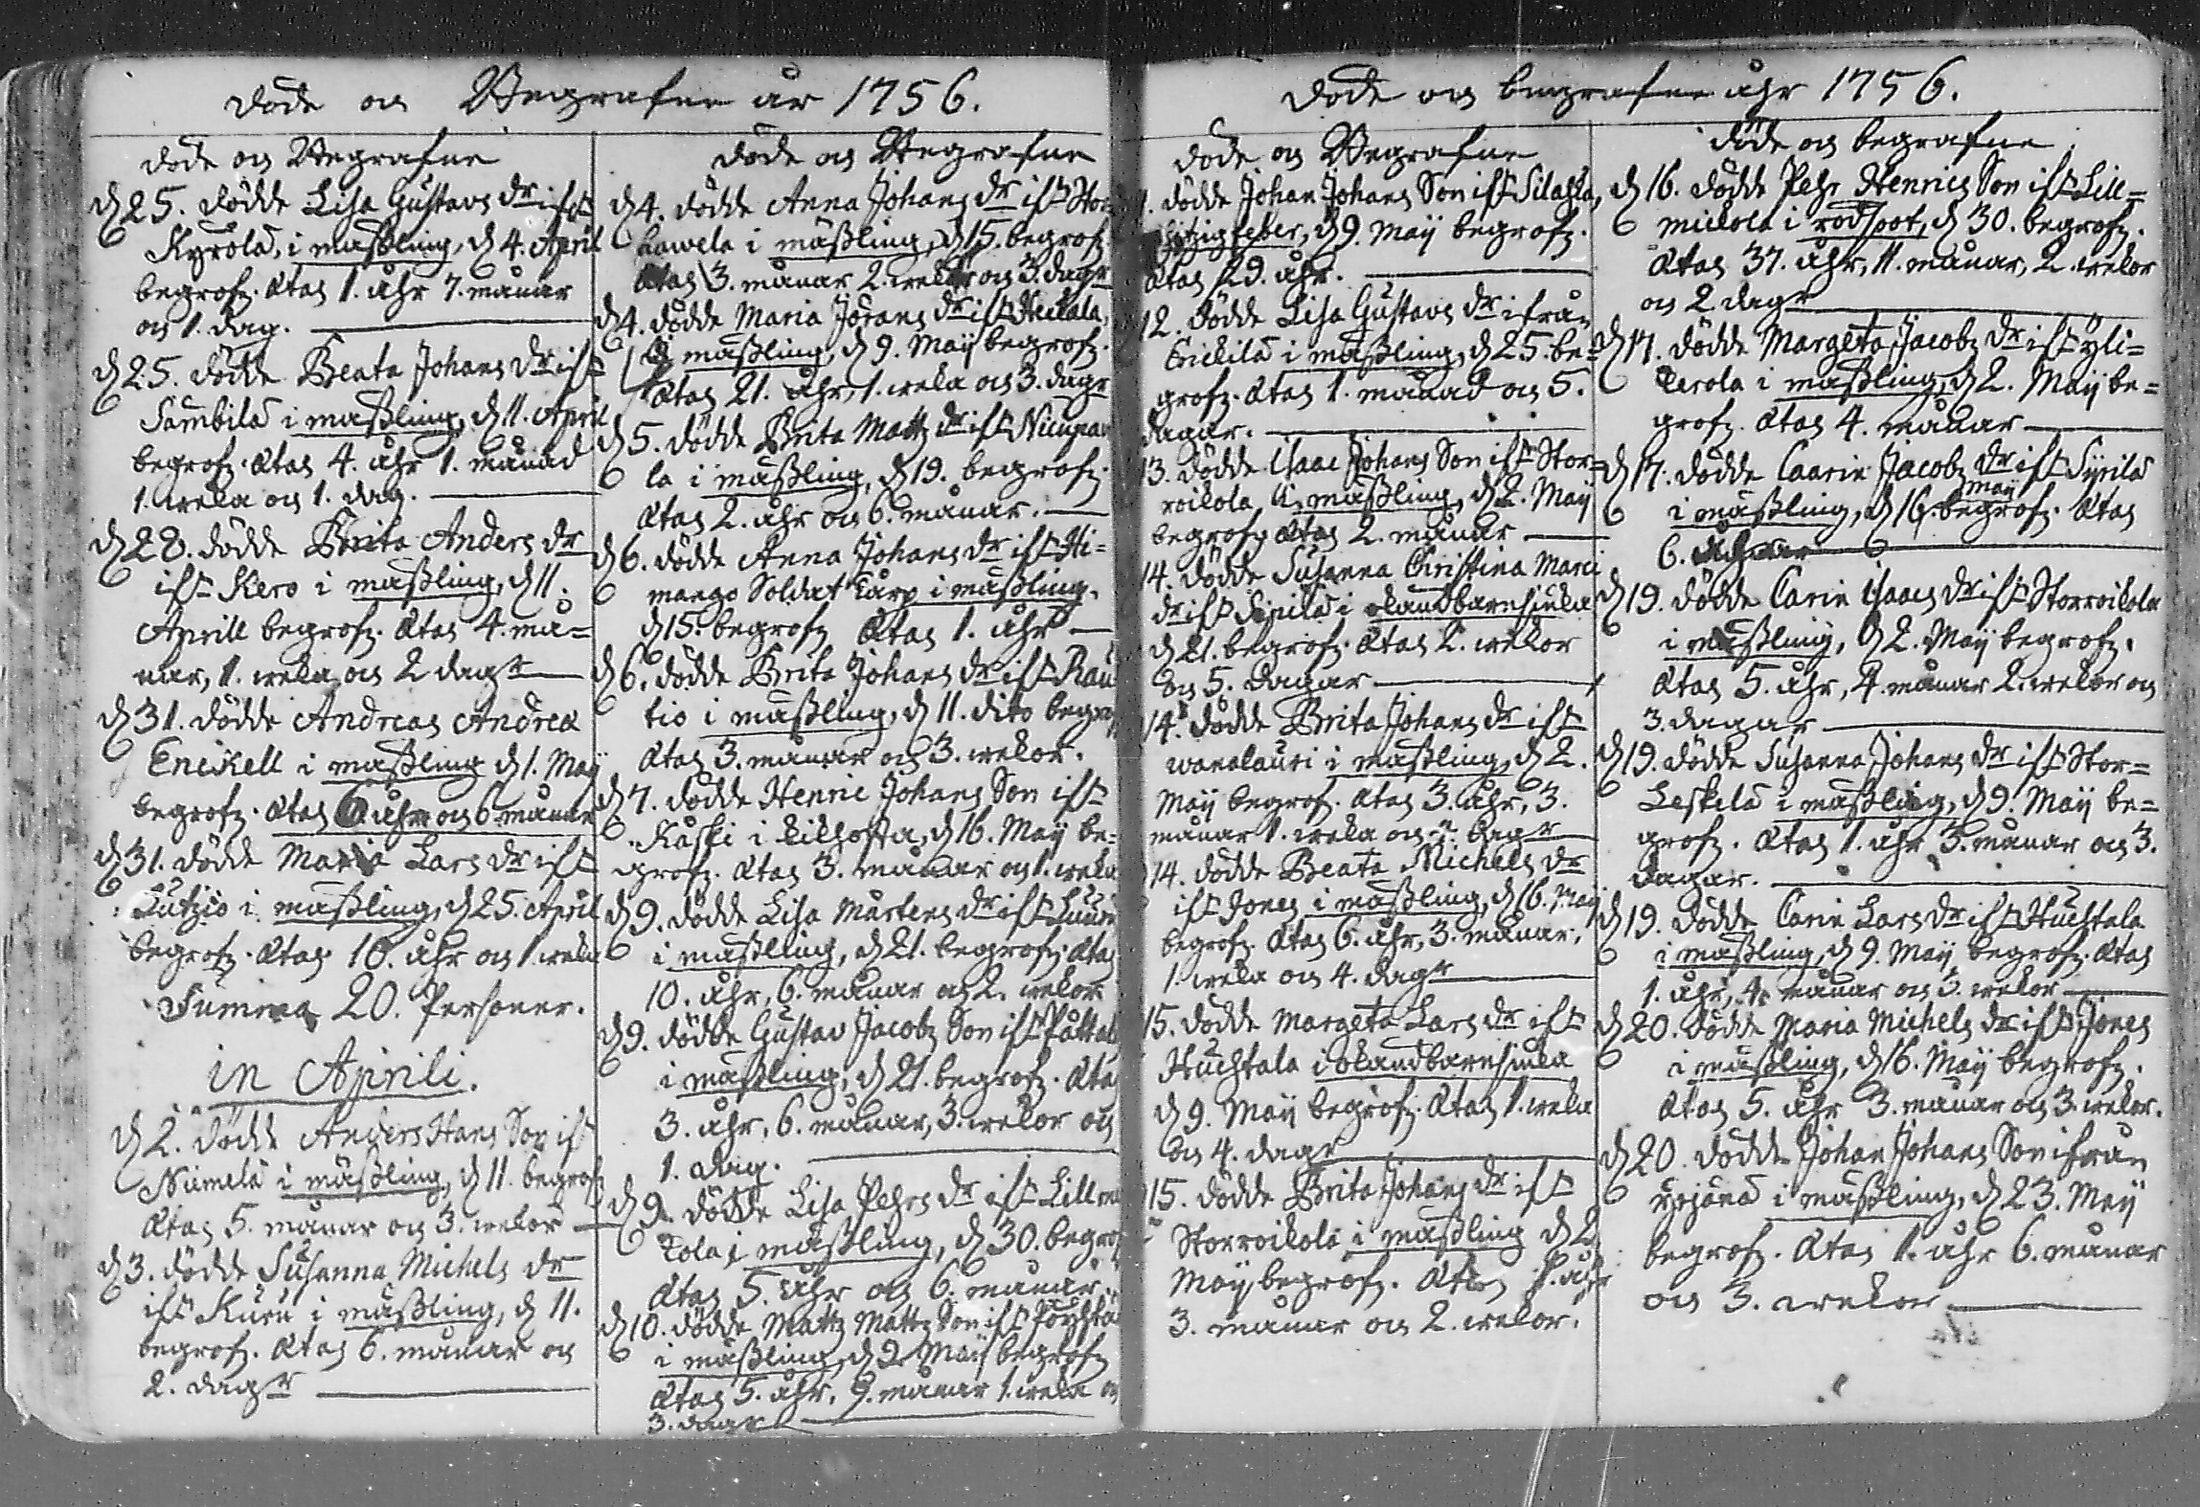 Döde och Begrafne år 1756.
Döde och Begrafne
d 25. dödde Lisa Gustavs dr ifrn
Kyrölä, i mäßling, d 4. April
begrofz. Ætas 1. åhr 7. månar
och 1. dag.
d 25. dödde Beata Johans dr ifrn
Sambila i mäßling, d 11. April
begrofz. Ætas 4. åhr 1. månad
1. weka och 1. dag.
d 28. dödde Brita Anders dr
ifrn Kero i mäßling, d 11.
Aprill begrofz. Ætas 4. må=
nar, 1. weka och 2 dagr
d 31. dödde Andreas Andreæ
Eneskell i mäßling d 1. Maÿ
begrofz. Ætas åhr och 6. månar
d 31. dödde Maria Lars dr ifrn
i mäßling, d 25. April
begrofz. Ætas 10. åhr och 1. weka
Summa 20. Personer.
in Aprili.
d 2. dödde Anders Hans Son ifr
Niemelä i mäßling, d 11. begrofz
Ætas 5. månar och 3. wekor
d 3. dödde Susanna Michels dr
ifrn Kuru i mäßling, d 11.
begrofz. Ætas 6. månar och
2. dagr
Döde och Begrafne
d 4. dödde Anna Johans dr ifrn Stor
i mäßling, d 15. begrofz.
Ætas 3. månar 2. wekor och 3. dagr
d 4. dödde Maria Jörans dr ifrn Heikala,
i mäßling, d 9. Maÿ begrofz.
Ætas 21. åhr, 1. weka och 3. dagr
d 5. dödde Brita Mattz dr ifrn
la i mäßling, d 19. begrofz.
Ætas 2. åhr och 6. månar.
d 6. dödde Anna Johans dr ifrn Hi=
mango Soldat Karp i mäßling.
d 15. begrofz Ætas 1. åhr
d 6. dödde Brita Johans dr ifrn Rau
tio i mäßling, d 11. dito begrofz
Ætas 3. månar och 3. wekor.
d 7. dödde Henric Johans Son ifrn
Kåski i kikhosta, d 16. Maÿ be=
grofz. Ætas 3. månar och 1. weka
d 9. dödde Lisa Mårtens dr ifrn
i mäßling, d 21. begrofz. Ætas
10. åhr, 6. månar och 2. wekor
d 9. dödde Gustav Jacobz Son ifrn
i mäßling, d 21. begrofz. Ætas
3. åhr, 6. månar, 3. wekor och
1. dag.
d 9. dödde Lisa Pehrs dr ifrn Lill
kola i mäßling, d 30. begrof
Ætas 5. åhr och 6. månar.
d 10. dödde Mattz Mattz Son ifrn
i mäßling, d 2. Maÿ begrofz
Ætas 5. åhr, 9. månar 1. weka och
3. dagr
Döde och begrafne åhr 1756.
Döde och Begrafne
dödde Johan Johans Son ifrn Silakka,
i hitzigfeber, d 9. Maÿ begrofz.
Ætas 29. åhr.
12. dödde Lisa Gustavs dr ifrån
Erickilä i mäßling, d 25. be=
grofz. Ætas 1. månad och 5.
dagar.
13. dödde Isaac Johans Son ifrn Stor=
roikola i mäßling, d 2. Maÿ
begrofz Ætas 2. månar
14. dödde Susanna Christina Marci
dr ifrn i okändbarnsiuka
d 21. begrofz. Ætas 2. wekor
och 5. dagar
14. dödde Brita Johans dr ifrn
wanalauri i mäßling, d 2.
Maÿ begrof. Ætas 3. åhr, 3.
månar 1. weka och 2. dagr
14. dödde Beata Michels dr
ifrn Jones i mäßling, d 16. Maÿ
begrofz. Ætas 6. åhr, 3. månar,
1. weka och 4. dagr
15. dödde Margeta Lars dr ifrn
Huchtala i okändbarnsiuka
d 9. Maÿ begrofz. Ætas 1. weka
och 4. dagr
15. dödde Brita Johans dr ifrn
Storroikola i mäßling d 2
Maÿ begrofz. Ætas åhr
3. månar och 2. wekor.
döde och begrafne
d 16. dödde Pehr Henrics Son ifrn Lill=
mickola i rödsoot, d 30. begrofz.
Ætas 37. åhr, 11. månar, 2. wekor
och 2 dagr
d 17. dödde Margeta Jacobz dr ifrn Yli=
kerola i mäßling, d 2. Maÿ be=
grofz. Ætas 4. månar
d 17. dödde Caarin Jacobz dr ifrn Syrilä
i mäßling, d 16. maÿ begrofz. Ætas
6.
d 19. dödde Carin Isaacs dr ifrn Storroikola
i mäßling, d 2. Maÿ begrofz.
Ætas 5. åhr, 4. månar 2. wekor och
3. dagar
d 19. dödde Susanna Johans dr ifrn Stor=
Leskelä i mäßling, d 9. Maÿ be=
grofz. Ætas 1. åhr 3. månar och 3.
dagar.
d 19. dödde Carin Lars dr ifrn Huchtala
i mäßling, d 9. Maÿ begrofz. Ætas
1. åhr, 4. månar och 3. wekor
d 20. dödde Maria Michels dr ifrn Jones
i mäßling, d 16. Maÿ begrofz.
Ætas 5. åhr 3. månar och 3. wekor.
d 20. dödde Johan Johans Son ifrån
Yrjänä i mäßling, d 23. Maÿ
begrofz. Ætas 1. åhr 6. månar
och 3. wekor